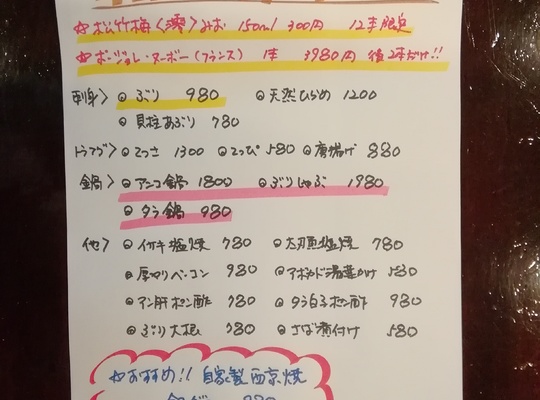 ☆松竹梅〈澪〉みお 150ml 300円 12本限定
☆ボージョレ・ヌーボー(フランス) 1本 3980円 後2本だけ!!
刺身〉 ◎ ぶり 980 ◎ 天然ひらめ 1200
◎ 貝柱あぶり 780
トラフグ〉 ◎ てっさ 1300 ◎ てっぴ 580 ◎ 唐揚げ 880
鍋〉 ◎ アンコ鍋 1800 ◎ ぶりしゃぶ 1980
◎ タラ鍋 980
他〉 ◎ イサキ塩焼 780 ◎ 太刀魚塩焼 780
◎ 厚切りベーコン 980 ◎ アボカド湯葉かけ 580
◎ アン肝ポン酢 780 ◎ タラ白子ポン酢 980
◎ ぶり大根 780 ◎ さば煮付け 580
☆おすすめ!! 自家製西京焼